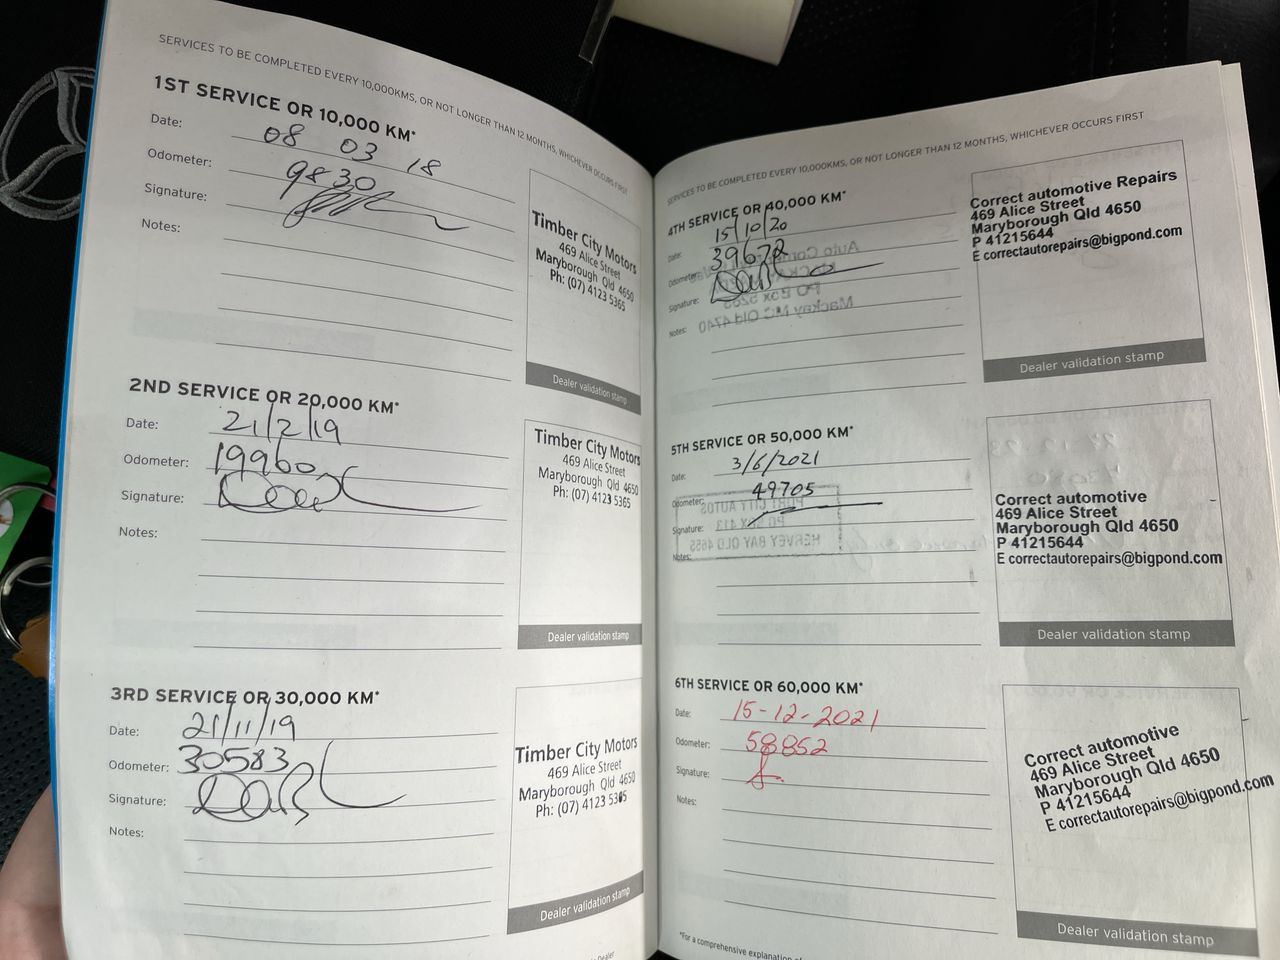 SERVICES TO BE COMPLETED EVERY 10,000KMS, OR NOT LONGER THAN 12 MONTHS, WHICHEVER OCCURS FIRST
1ST SERVICE OR 10,000 KM*
Date: 08 03 18
Odometer: 9830
Signature:
Notes:
Timber City Motors
469 Alice Street
Maryborough Qld 4650
Ph: (07) 4123 5365
Dealer validation stamp
2ND SERVICE OR 20,000 KM*
Date: 21/2/19
Odometer: 19960
Signature:
Notes:
Timber City Motors
469 Alice Street
Maryborough Qld 4650
Ph: (07) 4123 5365
Dealer validation stamp
3RD SERVICE OR 30,000 KM*
Date: 21/11/19
Odometer: 30583
Signature:
Notes:
Timber City Motors
469 Alice Street
Maryborough Qld 4650
Ph: (07) 4123 5365
Dealer validation stamp
Dealer
SERVICES TO BE COMPLETED EVERY 10,000KMS, OR NOT LONGER THAN 12 MONTHS, WHICHEVER OCCURS FIRST
4TH SERVICE OR 40,000 KM*
Date: 15/10/20
Odometer: 39672
Signature:
Notes:
Correct automotive Repairs
469 Alice Street
Maryborough Qld 4650
P 41215644
E correctautorepairs@bigpond.com
Dealer validation stamp
5TH SERVICE OR 50,000 KM*
Date: 3/6/2021
Odometer: 49705
Signature:
Notes:
Correct automotive
469 Alice Street
Maryborough Qld 4650
P 41215644
E correctautorepairs@bigpond.com
Dealer validation stamp
6TH SERVICE OR 60,000 KM*
Date: 15-12-2021
Odometer: 58852
Signature:
Notes:
Correct automotive
469 Alice Street
Maryborough Qld 4650
P 41215644
E correctautorepairs@bigpond.com
Dealer validation stamp
*For a comprehensive explanation